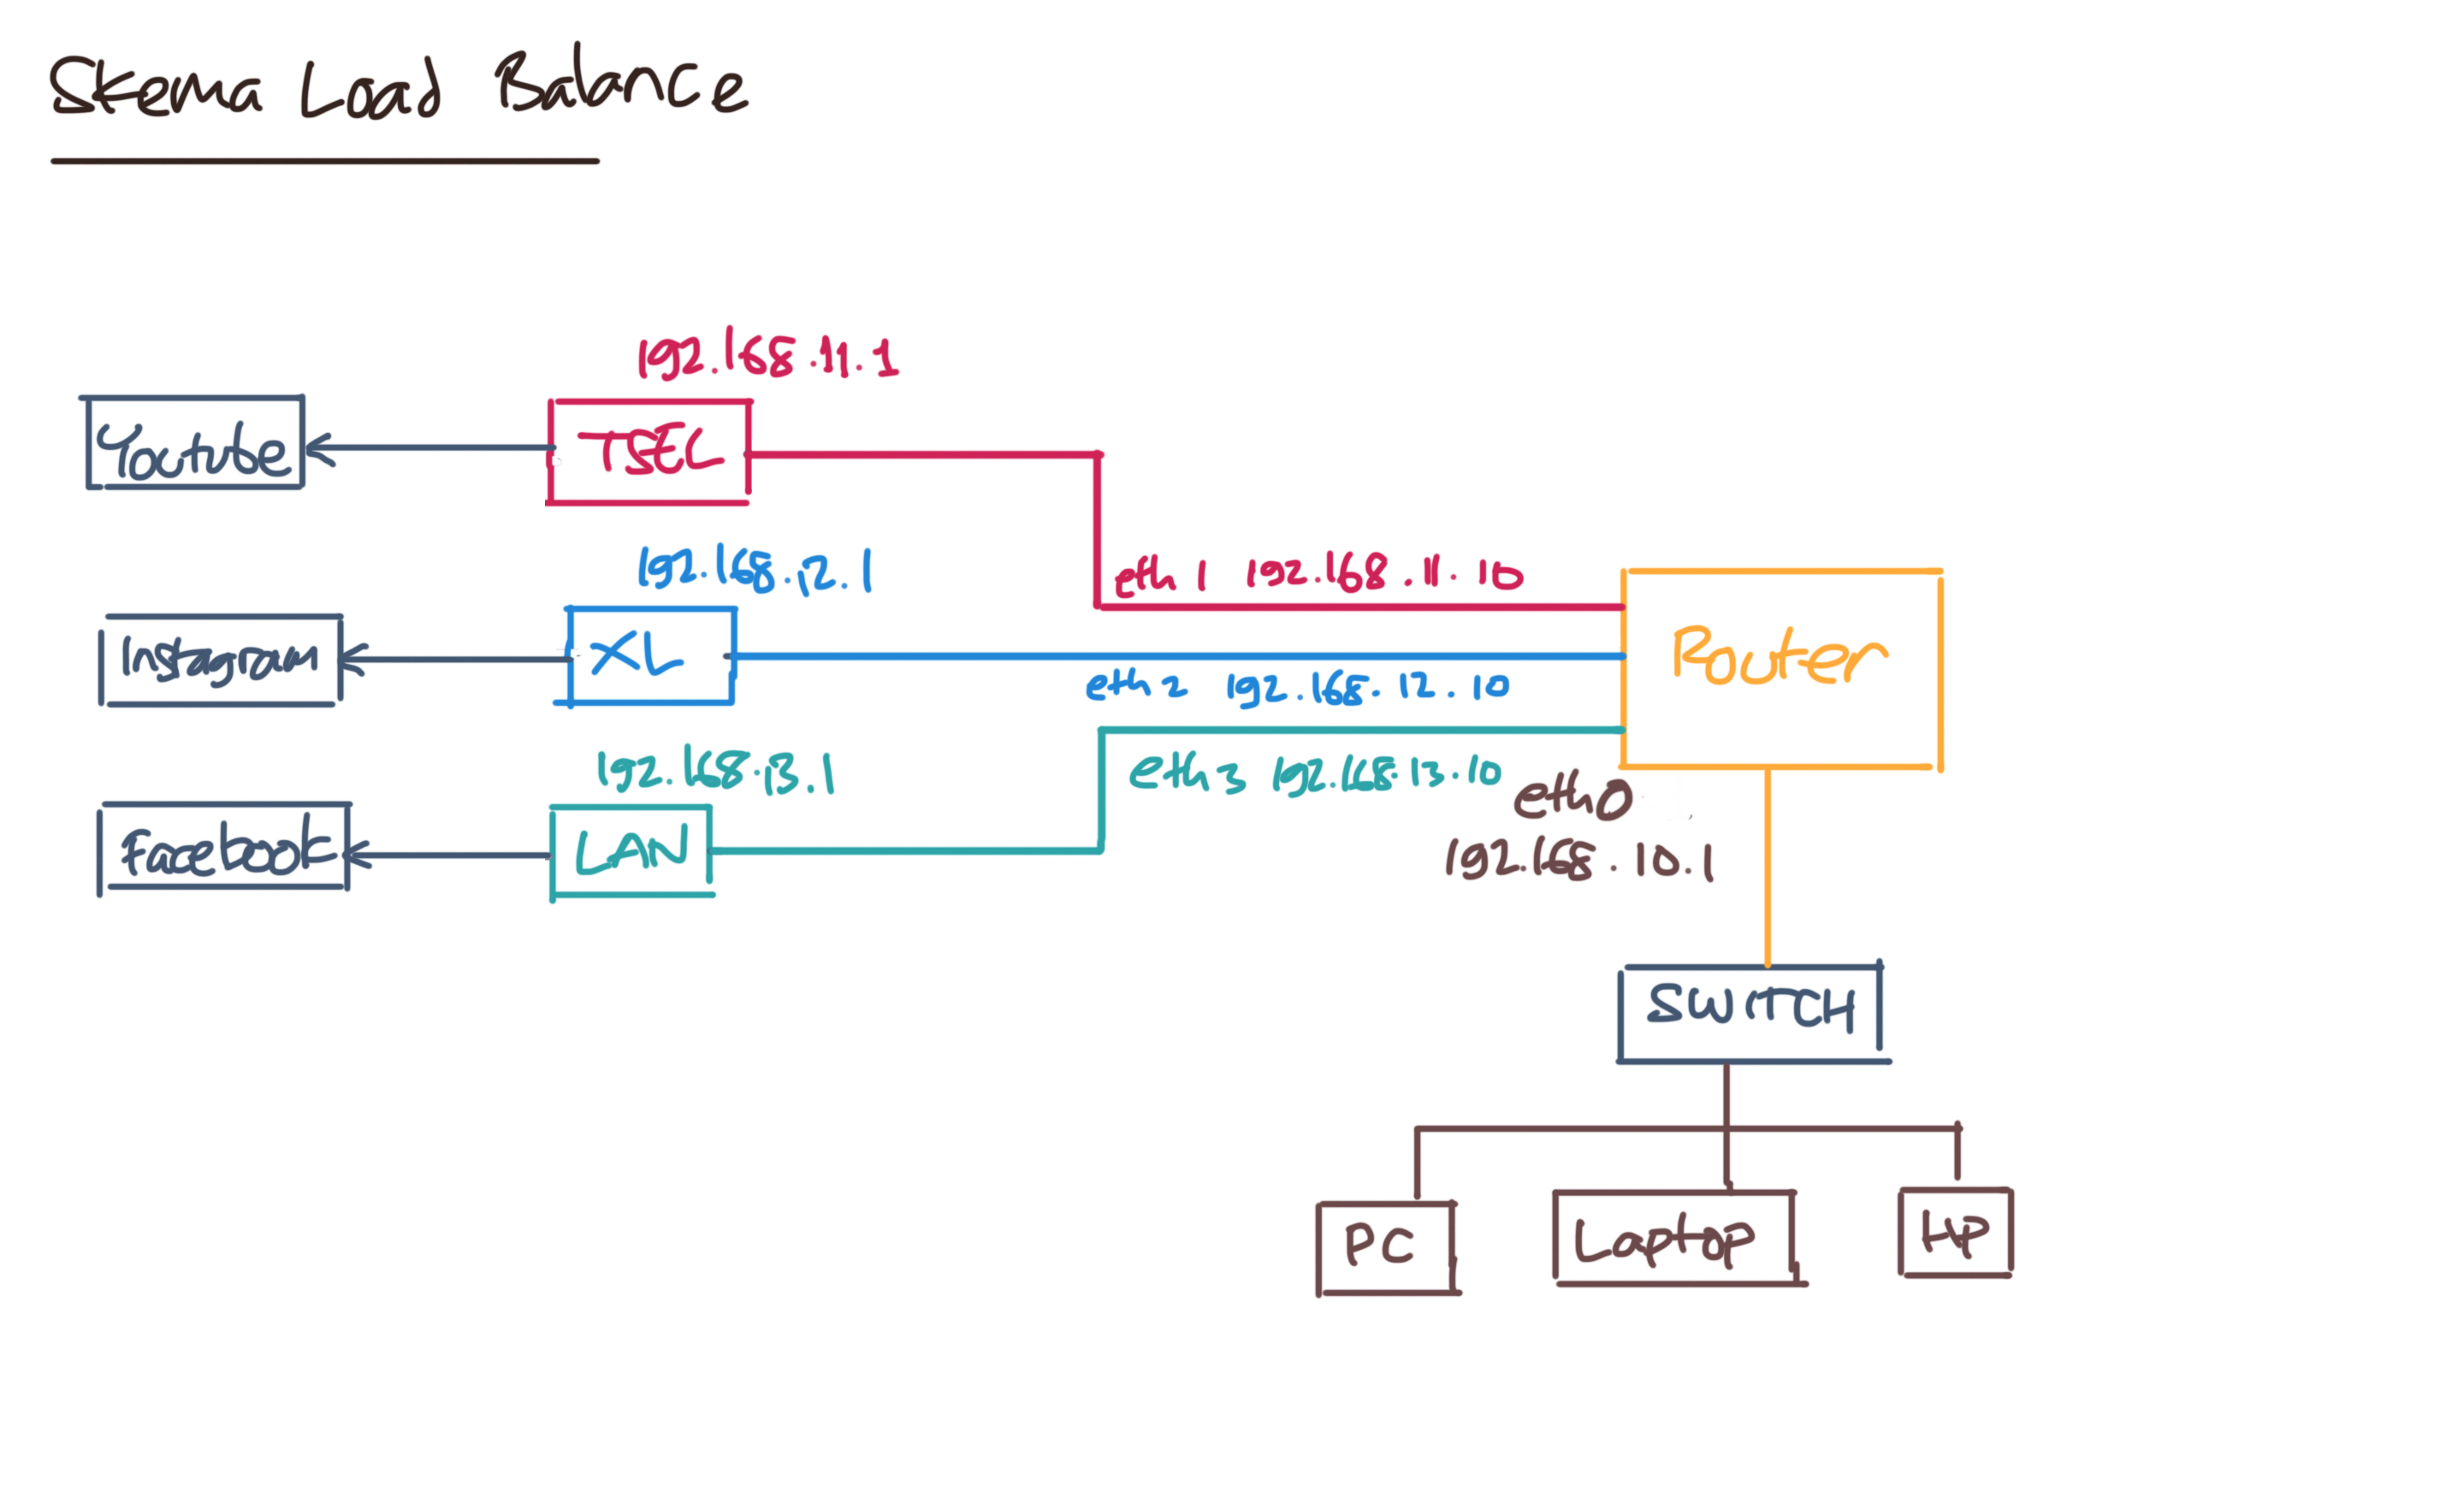 Skema Load Balance
192.168.11.1
Youtube
TSEL
192.168.12.1
eth 1 192.168.11.10
Instagram
XL
Router
eth 2 192.168.12.10
192.168.13.1
eth 3 192.168.13.10
eth0
192.168.10.1
Facebook
LAN
SWITCH
PC
Laptop
HP